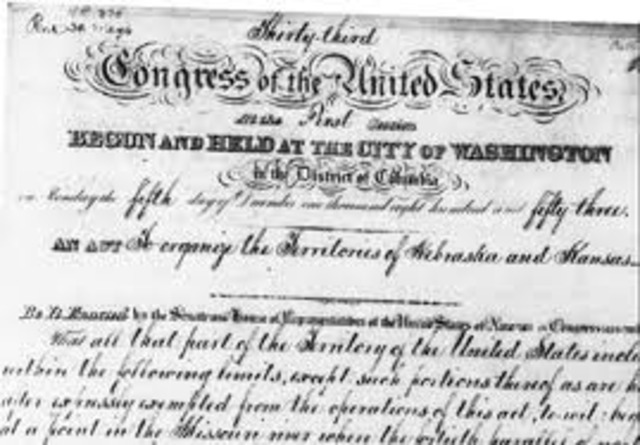 Thirty-third
Congress of the United States,
At the First Session
BEGUN AND HELD AT THE CITY OF WASHINGTON
in the District of Columbia
on Monday the fifth day of December one thousand eight hundred and fifty three.
AN ACT To organize the Territories of Nebraska and Kansas
Be it Enacted by the Senate and House of Representatives of the United States of America in Congress
That all that part of the Territory of the United States incl
within the following limits, except such portions thereof as are h
after expressly exempted from the operations of this act, to wit: beg
at a point in the Missouri river where the fortieth parallel of